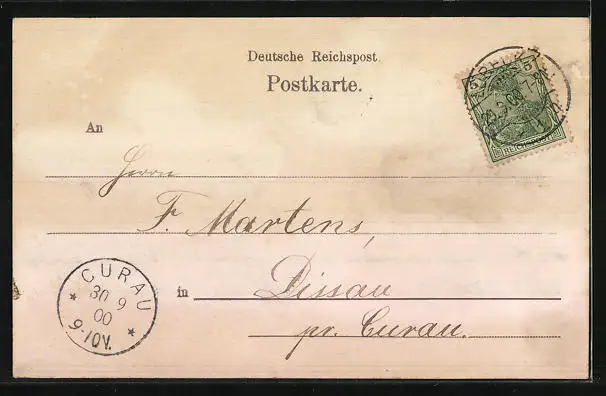 Deutsche Reichspost
Postkarte.
An
Herrn
F. Martens,
in Dissau
pr. Curau.
CURAU
30 9
00
9-10V.
5 5
REICHSPOST
9.00.7-8